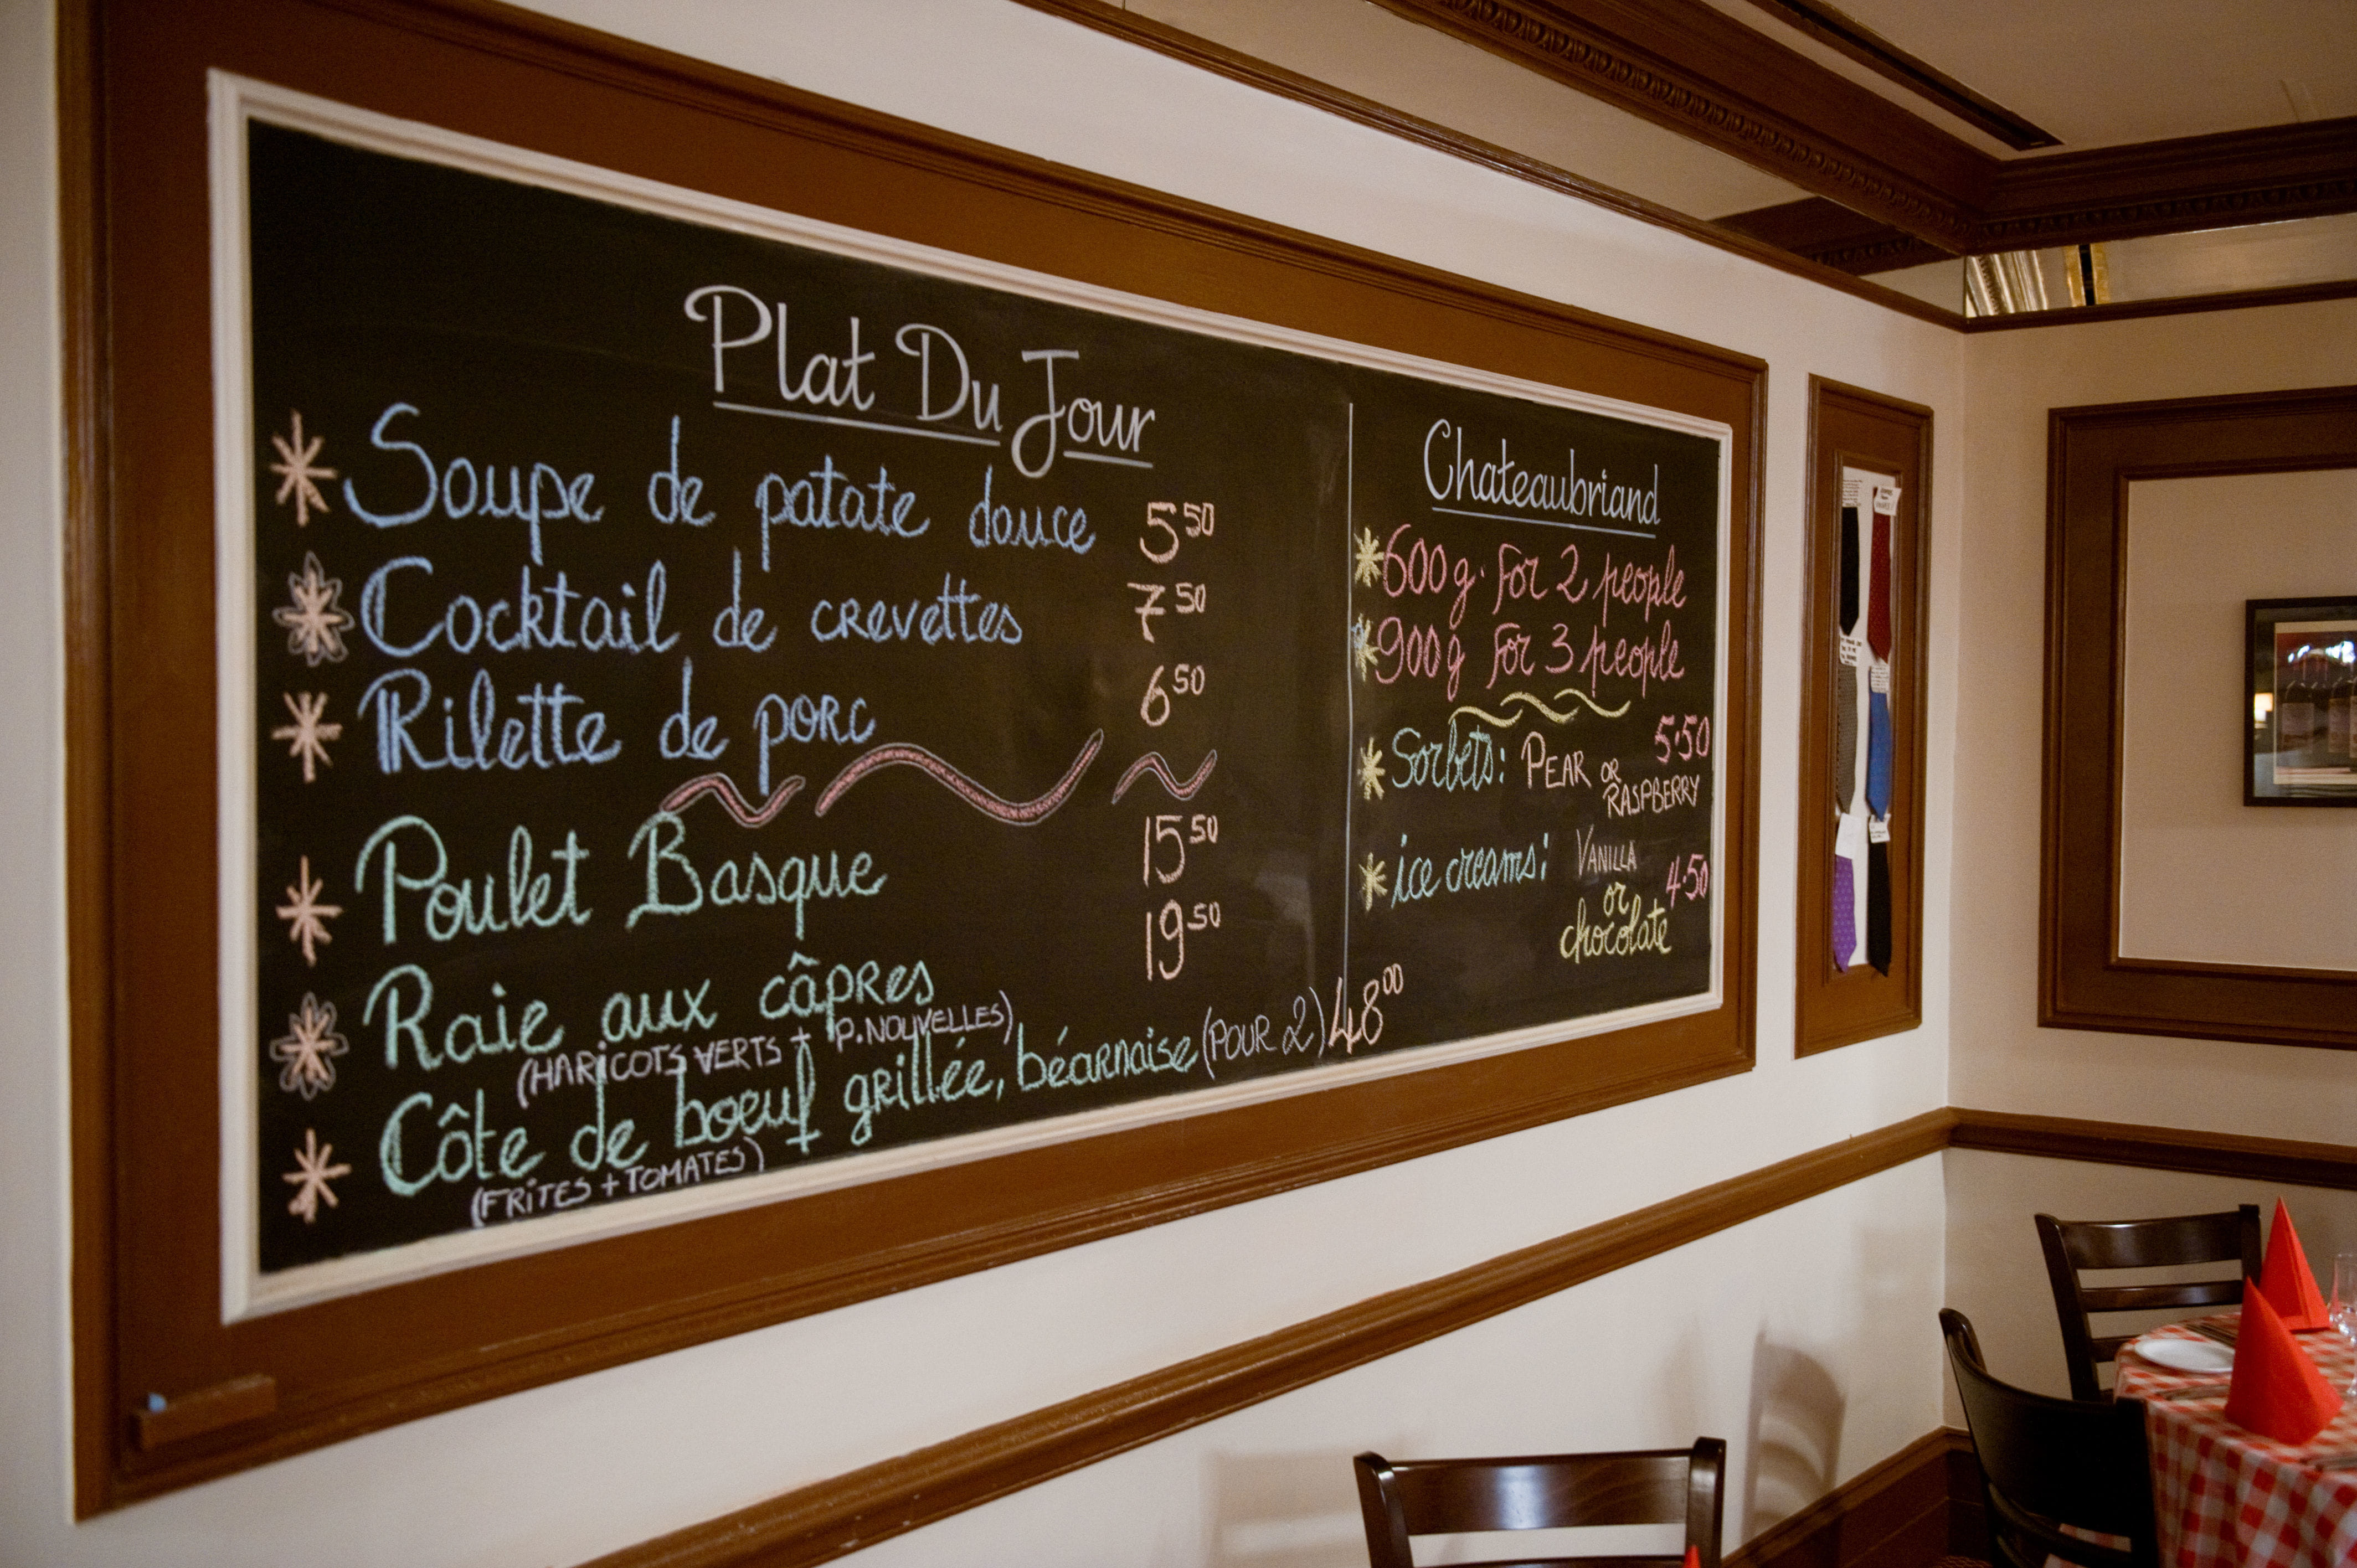 Plat Du Jour
Soupe de patate douce 5 50
Cocktail de crevettes 7 50
Rilette de porc 6 50
Poulet Basque 15 50
Raie aux câpres 19 50
(HARICOTS VERTS + P.NOUVELLES)
Côte de boeuf grillée, béarnaise (POUR 2) 48 00
(FRITES + TOMATES)
Chateaubriand
600g. for 2 people
900g for 3 people
Sorbets: PEAR OR RASPBERRY 5.50
ice creams: VANILLA
or 4.50
chocolate